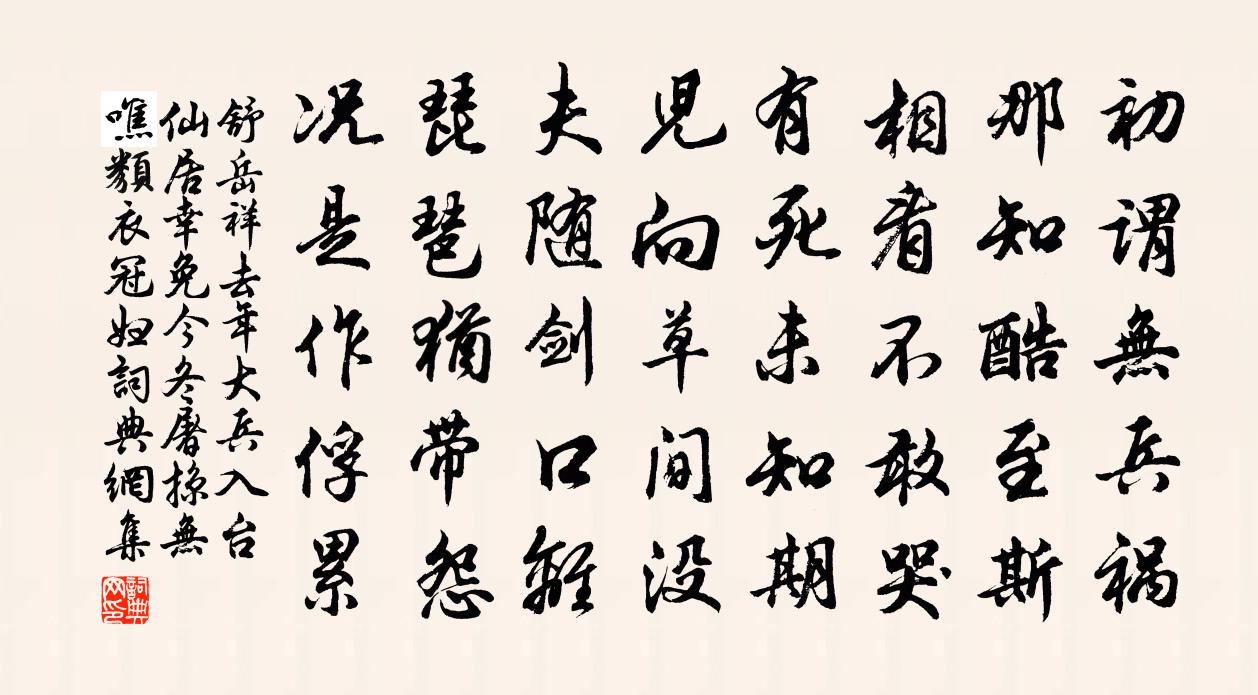 初謂無兵禍
那知酷至斯
相看不敢哭
有死未知期
児向草間没
夫随剑口離
琵琶猶带怨
况是作俘累
舒岳祥去年大兵入台
仙居幸免今冬屠掠無
噍類衣冠妇詞典網集